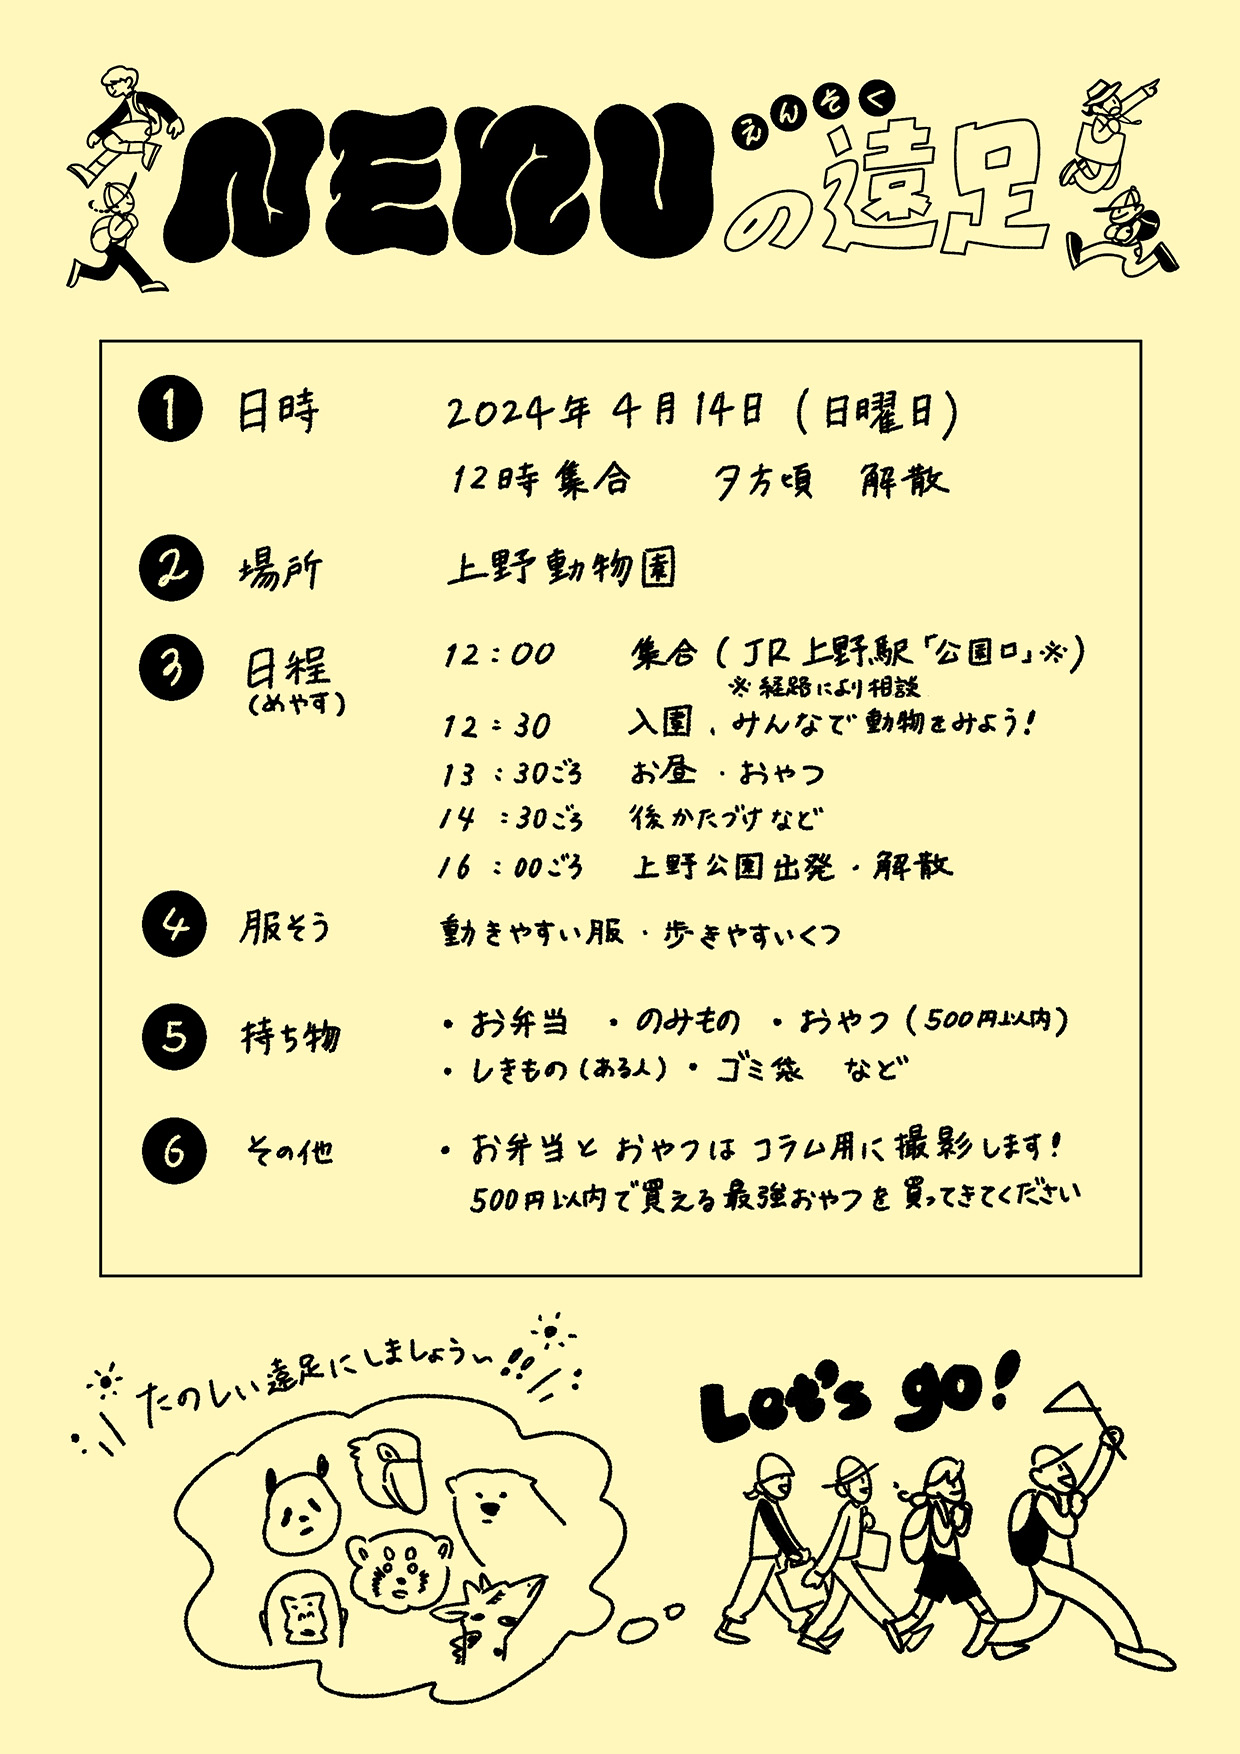 NERUの遠足
えんそく
1 日時 2024年4月14日(日曜日)
12時集合 夕方頃 解散
2 場所 上野動物園
3 日程 12:00 集合(JR上野駅「公園口」※)
(めやす) ※経路により相談
12:30 入園、みんなで動物をみよう!
13:30ごろ お昼・おやつ
14:30ごろ 後かたづけなど
16:00ごろ 上野公園出発・解散
4 服そう 動きやすい服・歩きやすいくつ
5 持ち物 ・お弁当 ・のみもの ・おやつ(500円以内)
・しきもの(ある人) ・ゴミ袋 など
6 その他 ・お弁当とおやつはコラム用に撮影します!
500円以内で買える最強おやつを買ってきてください
たのしい遠足にしましょう〜!!
Let's go!